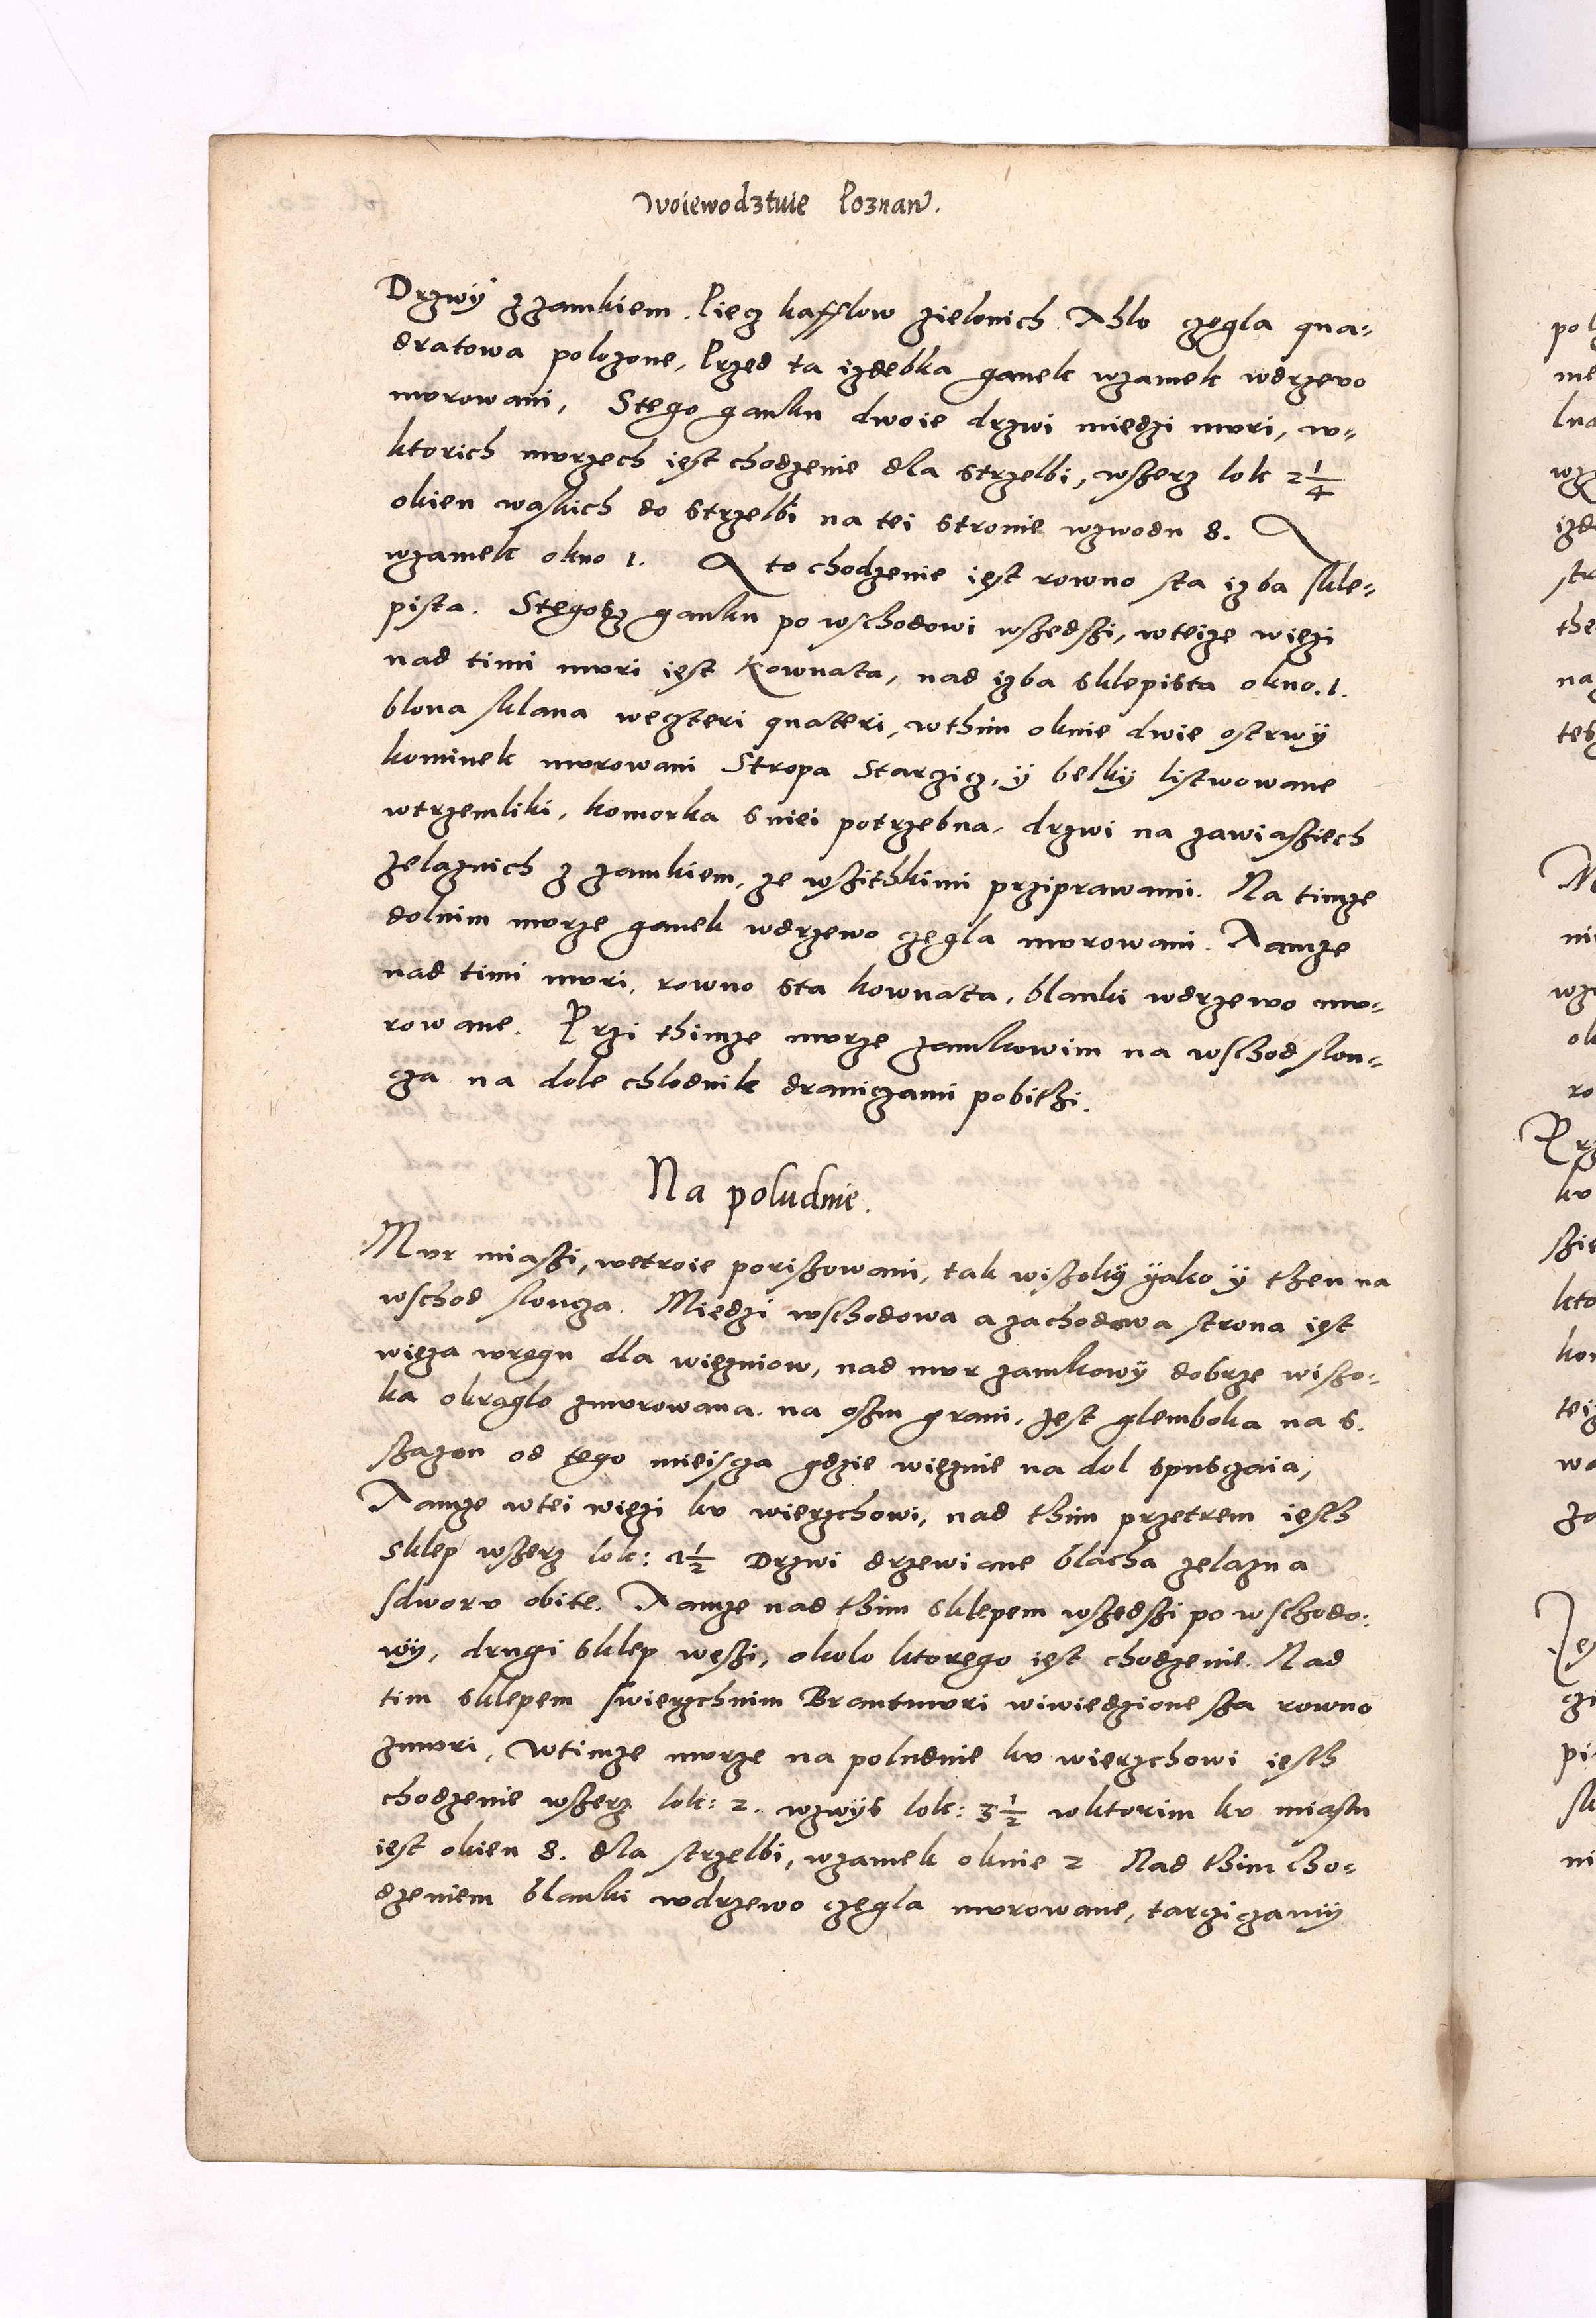 Woiewodztwie Poznan.
Drzwÿ z zamkiem. Piecz kafflow zielonich. Thlo czegla qua-
dratowa polozone, Przed ta izdebka ganek wzamek wdrzewo
mvrowani, Stego ganku dwoie drzwi miedzi mvri, w-
ktorich mvrzech iest chodzenie dla strzelbi, wszerz lok 2 1/4
okien waskich do strzelbi na tei stronie wzwodu 8. A
wzamek okno 1. A to chodzenie iest rowno sta izba skle-
pista. Stegosz ganku po wschodowi wszedszi, wteize wiezi
nad timi mvri iest Kownata, nad izba sklepista okno. 1.
blona sklana weczteri quateri, wthim oknie dwie ostrwÿ
kominek mvrowani Stropa Starczicz, ÿ belkÿ listwowane
wtrzemliki, komorka sniei potrzebna, drzwi na zawiaszech
zelaznich z zamkiem, ze wszithkimi prziprawami. Na timze
dolnim mvrze ganek wdrzewo czegla mvrowani. Tamze
nad timi mvri, rowno sta kownata, blanki wdrzewo mv-
rowane. Przi thimze mvrze zamkowim na wschod slon-
cza na dole chlodnik draniczami pobithi.
Na poludnie.
Mvr miaszi, wetroie poriszowani, tak wiszokÿ ÿako ÿ then na
wschod sloncza. Miedzi wschodowa a zachodowa strona iest
wieza wregu dla wiezniow, nad mvr zamkowÿ dobrze wiszo-
ka okraglo zmvrowana. na oszm grani, Jest glemboka na 6.
szazon od tego mieiscza gdzie wieznie na dol spusczaia,
Tamze wtei wiezi kv wierzchowi, nad thim przetrem iesth
sklep wszerz lok: 1 1/2 Drzwi drzewiane blacha zelazna
sdworv obite. Tamze nad thim sklepem wszedszi po wschodo-
wÿ, drugi sklep weszi, okolo ktorego iest chodzenie. Nad
tim sklepem swierzchnim Brantmvri wiwiedzione sza rowno
zmvri, Wtimze mvrze na poludnie kv wierzchowi iesth
chodzenie wszerz lok: 2. wzwÿs lok: 3 1/2 wktorim kv miastu
iest okien 8. dla strzelbi, wzamek oknie 2 Nad thim cho-
dzeniem blanki wdrzewo czegla mvrowane, tarcziczamÿ